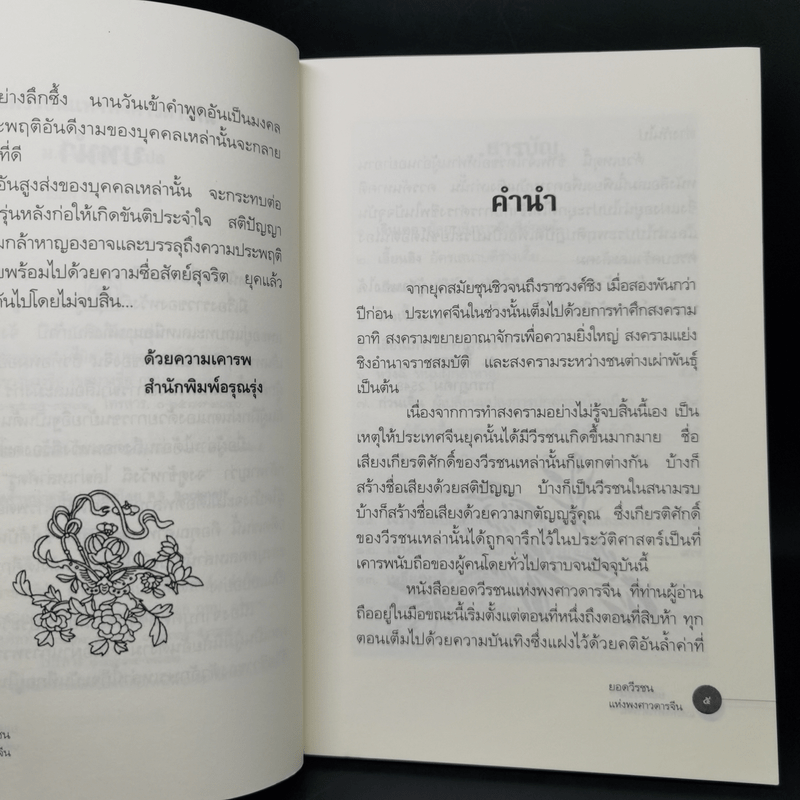 ย่างลึกซึ้ง นานวันเข้าคำพูดอันเป็นมงคล
ะพฤติอันดีงามของบุคคลเหล่านั้นจะกลาย
ที่ดี
อันสูงส่งของบุคคลเหล่านั้น จะกระทบต่อ
รุ่นหลังก่อให้เกิดขันติประจำใจ สติปัญญา
มกล้าหาญองอาจและบรรลุถึงความประพฤติ
บพร้อมไปด้วยความซื่อสัตย์สุจริต ยุคแล้ว
กันไปโดยไม่จบสิ้น...
ด้วยความเคารพ
สำนักพิมพ์อรุณรุ่ง
ชน
จีน
คำนำ
จากยุคสมัยชุนชิวจนถึงราชวงศ์ชิง เมื่อสองพันกว่า
ปีก่อน ประเทศจีนในช่วงนั้นเต็มไปด้วยการทำศึกสงคราม
อาทิ สงครามขยายอาณาจักรเพื่อความยิ่งใหญ่ สงครามแย่ง
ชิงอำนาจราชสมบัติ และสงครามระหว่างชนต่างเผ่าพันธุ์
เป็นต้น
เนื่องจากการทำสงครามอย่างไม่รู้จบสิ้นนี้เอง เป็น
เหตุให้ประเทศจีนยุคนั้นได้มีวีรชนเกิดขึ้นมากมาย ชื่อ
เสียงเกียรติศักดิ์ของวีรชนเหล่านั้นก็แตกต่างกัน บ้างก็
สร้างชื่อเสียงด้วยสติปัญญา บ้างก็เป็นวีรชนในสนามรบ
บ้างก็สร้างชื่อเสียงด้วยความกตัญญูรู้คุณ ซึ่งเกียรติศักดิ์
ของวีรชนเหล่านั้นได้ถูกจารึกไว้ในประวัติศาสตร์เป็นที่
เคารพนับถือของผู้คนโดยทั่วไปตราบจนปัจจุบันนี้
หนังสือยอดวีรชนแห่งพงศาวดารจีน ที่ท่านผู้อ่าน
ถืออยู่ในมือขณะนี้เริ่มตั้งแต่ตอนที่หนึ่งถึงตอนที่สิบห้า ทุก
ตอนเต็มไปด้วยความบันเทิงซึ่งแฝงไว้ด้วยคติอันล้ำค่าที่
ยอดวีรชน
แห่งพงศาวดารจีน
๕